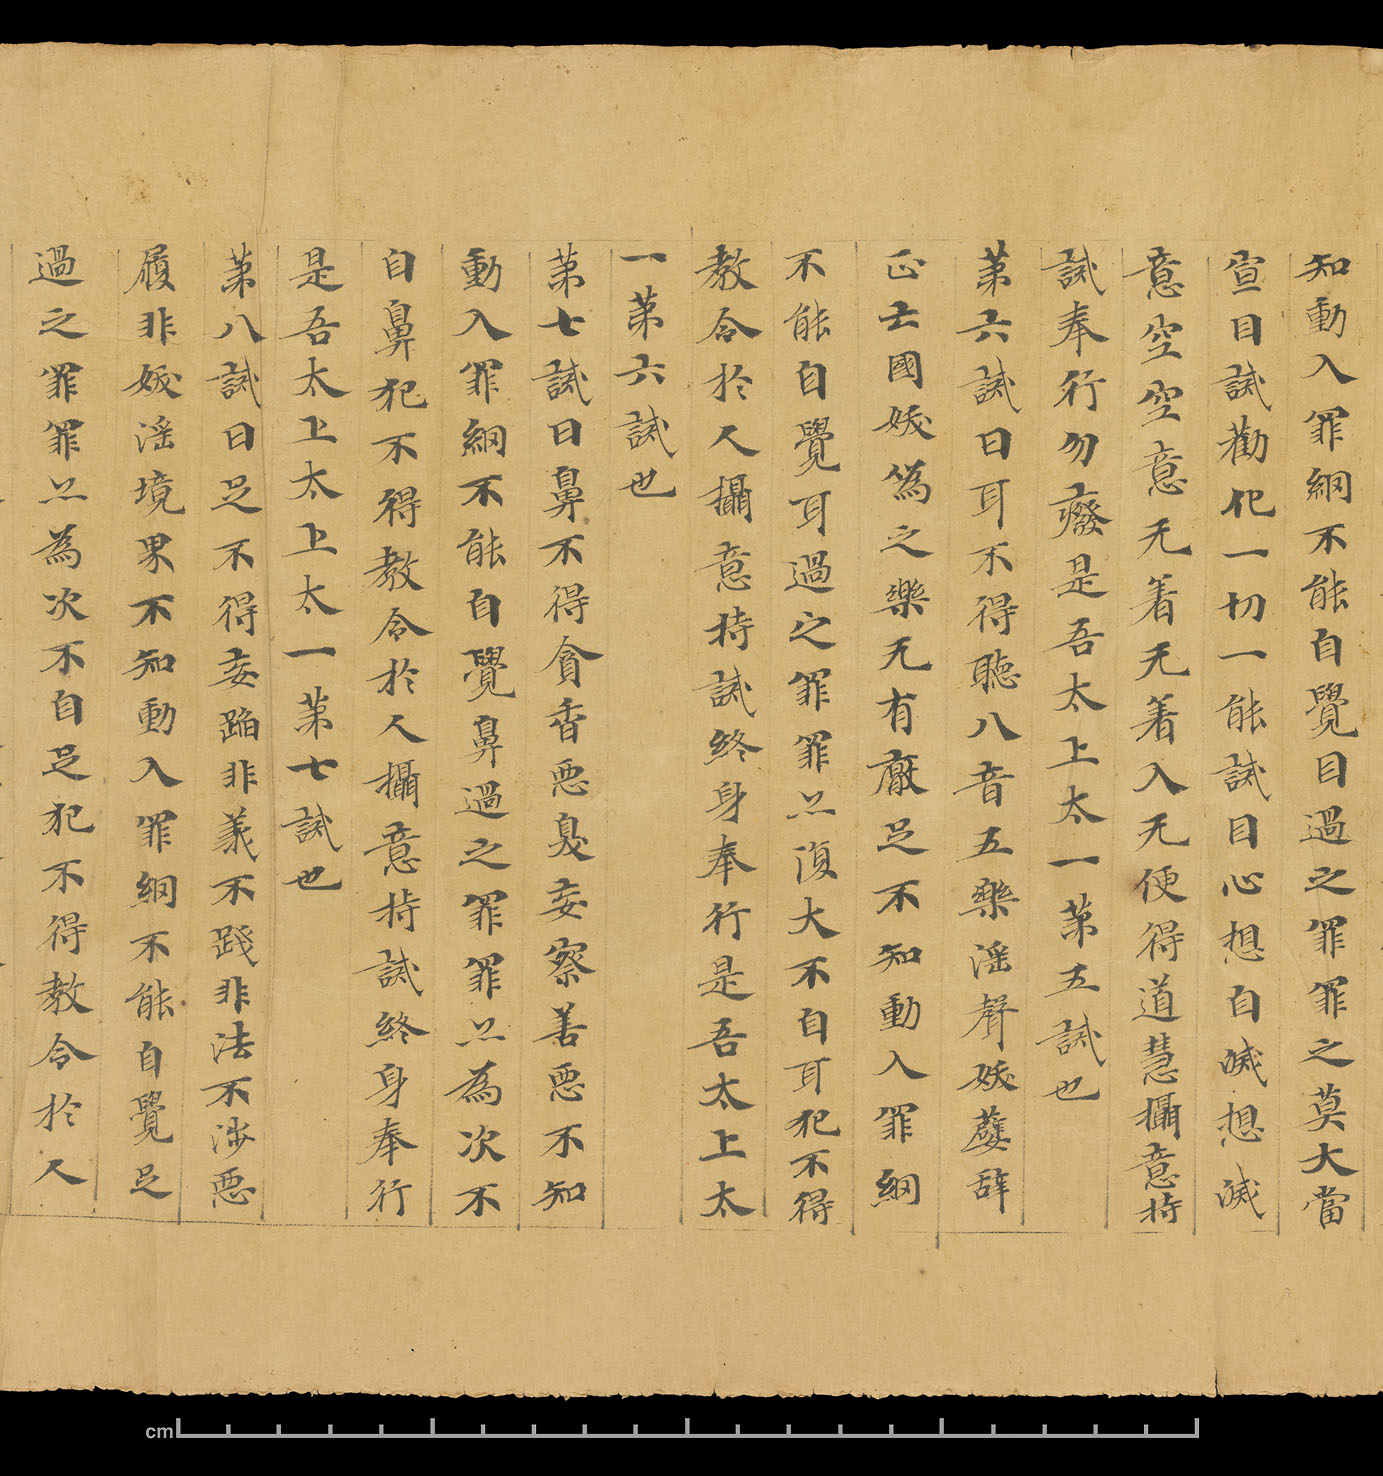 知動入罪網不能自覺目過之罪罪之莫大當
宣目誡勸化一切一能誡目心想自滅想滅
意空空意无着无着入无便得道慧攝意持
誡奉行勿癈是吾太上太一第五誡也
第六誡曰耳不得聽八音五樂淫聲妖孽辞
正亡國妖為之樂无有厭足不知動入罪網
不能自覺耳過之罪罪亦復大不自耳犯不得
教令於人攝意持誡終身奉行是吾太上太
一第六誡也
第七誡曰鼻不得貪香惡臭妄察善惡不知
動入罪網不能自覺鼻過之罪罪亦為次不
自鼻犯不得教令於人攝意持誡終身奉行
是吾太上太上太一第七誡也
第八誡曰足不得妄蹈非義不踐非法不涉惡
履非妖淫境界不知動入罪網不能自覺足
過之罪罪亦為次不自足犯不得教令於人
cm